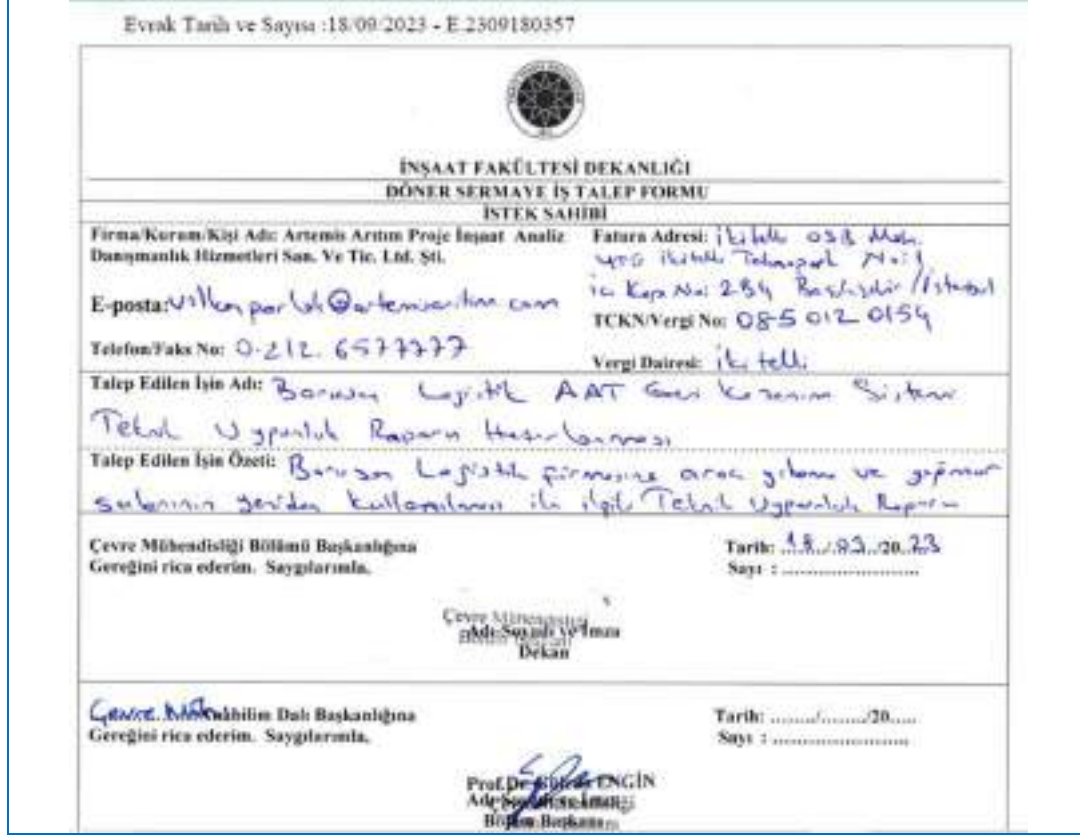 Evrak Tarih ve Sayısı :18/09/2023 - E.2309180357
İNŞAAT FAKÜLTESİ DEKANLIĞI
DÖNER SERMAYE İŞ TALEP FORMU
İSTEK SAHİBİ
Firma/Kurum/Kişi Adı: Artemis Arıtım Proje İnşaat Analiz
Danışmanlık Hizmetleri San. Ve Tic. Ltd. Şti.
Fatura Adresi: İkitelli OSB Mah.
YTÜ İkitelli Teknopark No:1
iç Kapı No: 2B4 Başakşehir /İstanbul
E-posta:
TCKN/Vergi No: 085 012 0154
Telefon/Faks No: 0.212. 6577777
Vergi Dairesi: ikitelli
Talep Edilen İşin Adı: Borusan Lojistik AAT Geri Kazanım Sistemi
Teknik Uygunluk Raporu Hazırlanması
Talep Edilen İşin Özeti: Borusan Lojistik firmasına araç yıkama ve yağmur
sularının yeniden kullanılması ile ilgili Teknik Uygunluk Raporu
Çevre Mühendisliği Bölümü Başkanlığına
Gereğini rica ederim. Saygılarımla,
Tarih: 18./.09../20..23
Sayı : ............................
Çevre Mühendisliği
Adı Soyadı ve İmza
Dekan
Çevre Müh. Anabilim Dalı Başkanlığına
Gereğini rica ederim. Saygılarımla,
Tarih: ......../......../20.....
Sayı : ............................
Prof.Dr. ENGİN
Bölüm Başkanı